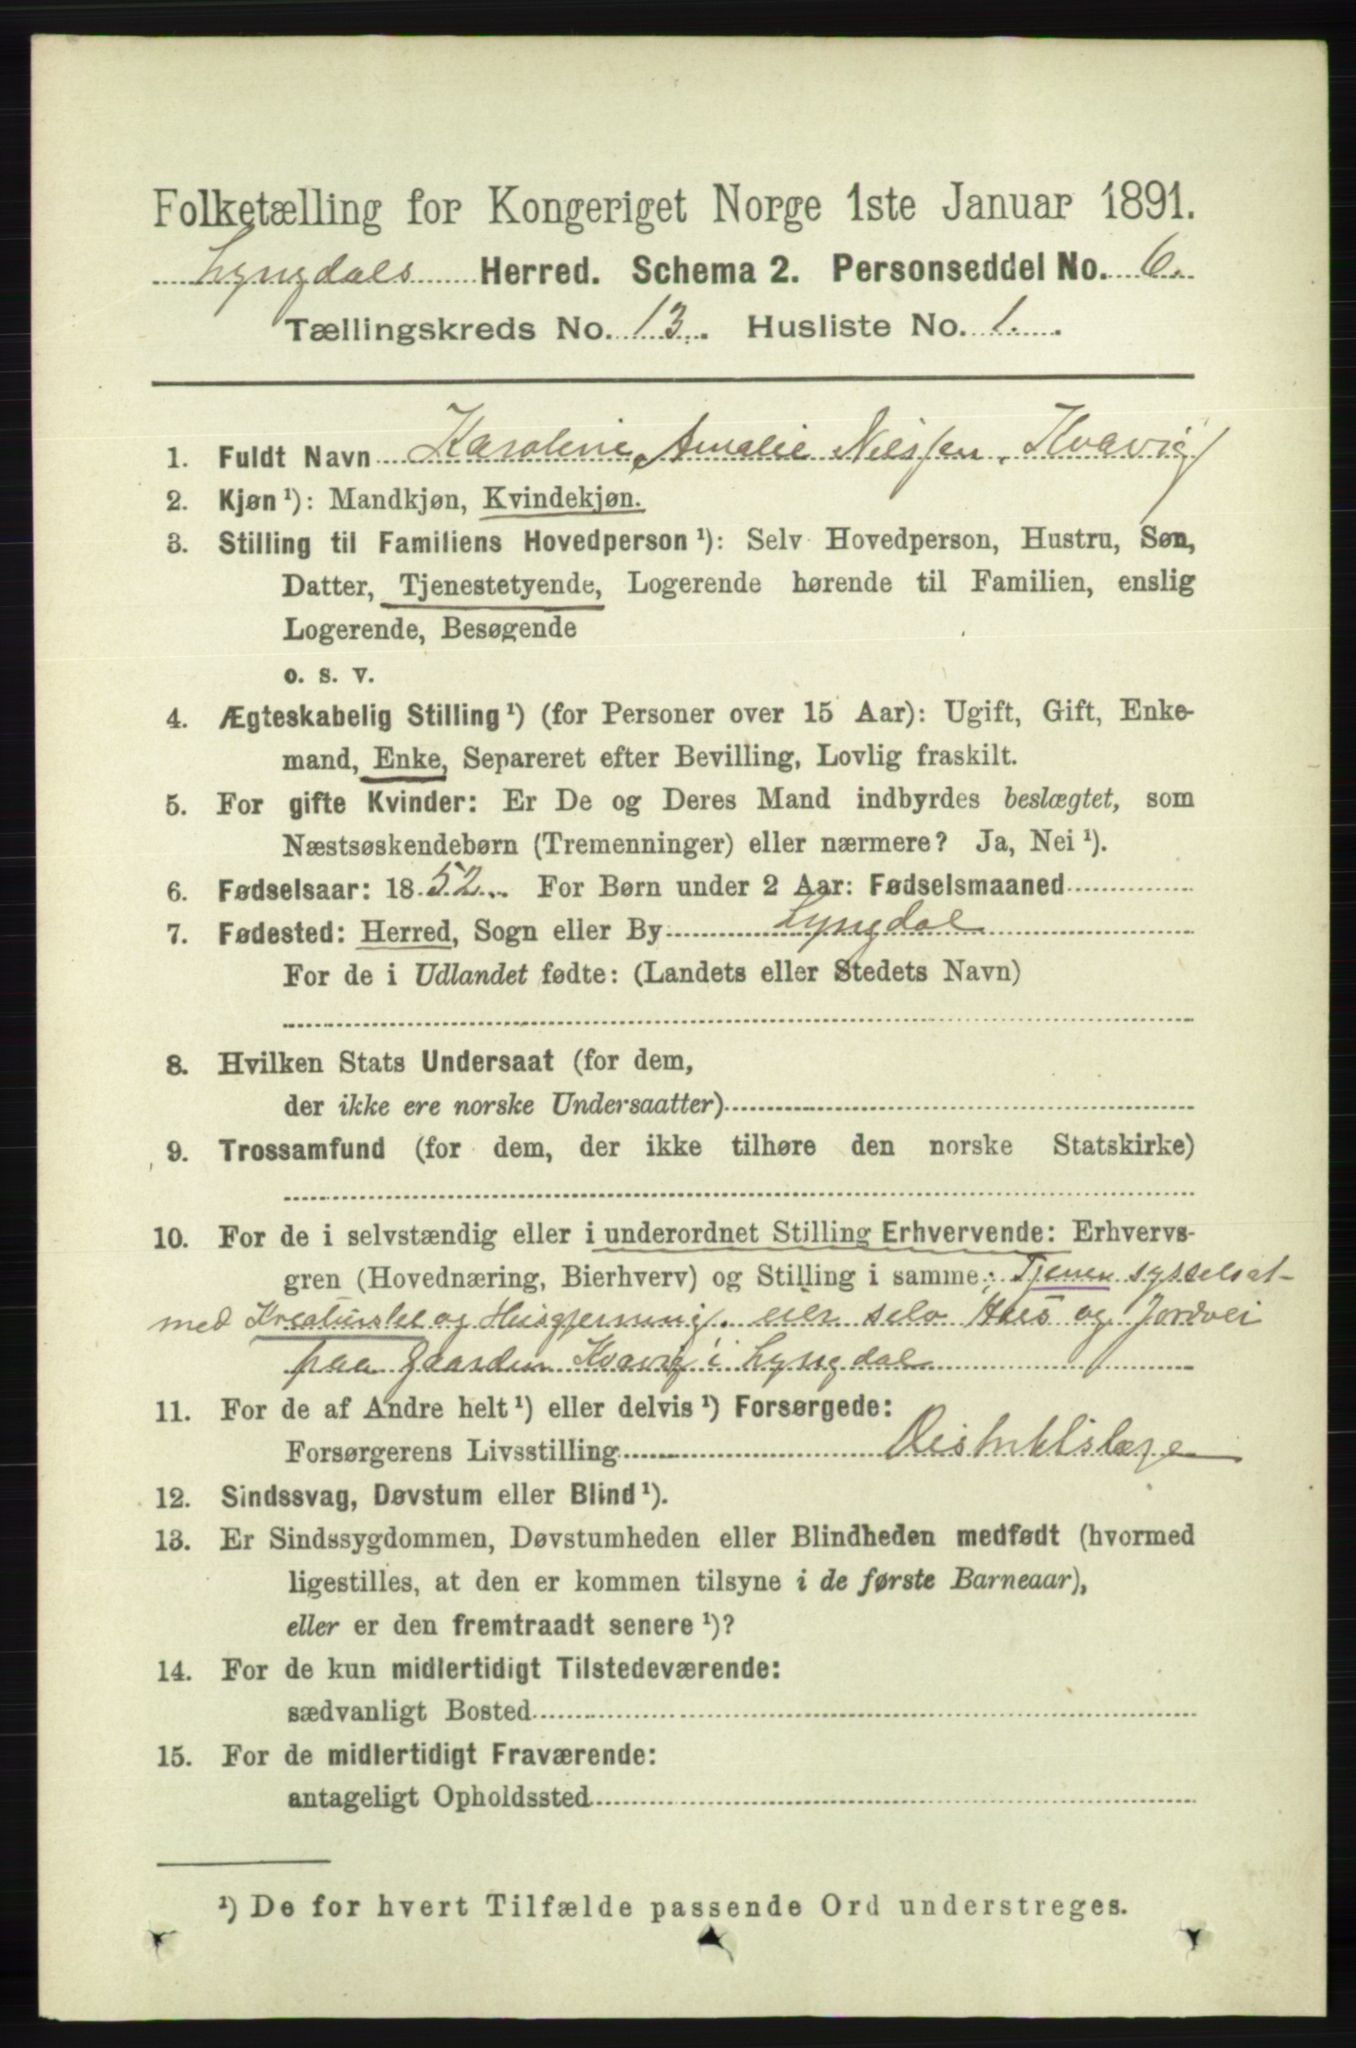 Folketælling for Kongeriget Norge 1ste Januar 1891.
Lyngdals Herred. Schema 2. Personseddel No. 6.
Tællingskreds No. 13. Husliste No. 1.
1. Fuldt Navn Karoline Amalie Nilssen, Kvavig
2. Kjøn ¹): Mandkjøn, Kvindekjøn.
3. Stilling til Familiens Hovedperson ¹): Selv Hovedperson, Hustru, Søn,
Datter, Tjenestetyende, Logerende hørende til Familien, enslig
Logerende, Besøgende
o. s. v.
4. Ægteskabelig Stilling ¹) (for Personer over 15 Aar): Ugift, Gift, Enke-
mand, Enke, Separeret efter Bevilling, Lovlig fraskilt.
5. For gifte Kvinder: Er De og Deres Mand indbyrdes beslægtet, som
Næstsøskendebørn (Tremenninger) eller nærmere? Ja, Nei ¹).
6. Fødselsaar: 1852. For Børn under 2 Aar: Fødselsmaaned
7. Fødested: Herred, Sogn eller By Lyngdal
For de i Udlandet fødte: (Landets eller Stedets Navn)
8. Hvilken Stats Undersaat (for dem,
der ikke ere norske Undersaatter)
9. Trossamfund (for dem, der ikke tilhøre den norske Statskirke)
10. For de i selvstændig eller i underordnet Stilling Erhvervende: Erhvervs-
gren (Hovednæring, Bierhverv) og Stilling i samme: Tjener sysselsat
med Kreaturstel og Husgjerning. eier selv Huus og Jordvei
paa Gaarden Kvavig i Lyngdal
11. For de af Andre helt ¹) eller delvis ¹) Forsørgede:
Forsørgerens Livsstilling Distriktslæge
12. Sindssvag, Døvstum eller Blind ¹).
13. Er Sindssygdommen, Døvstumheden eller Blindheden medfødt (hvormed
ligestilles, at den er kommen tilsyne i de første Barneaar),
eller er den fremtraadt senere ¹)?
14. For de kun midlertidigt Tilstedeværende:
sædvanligt Bosted
15. For de midlertidigt Fraværende:
antageligt Opholdssted
¹) De for hvert Tilfælde passende Ord understreges.